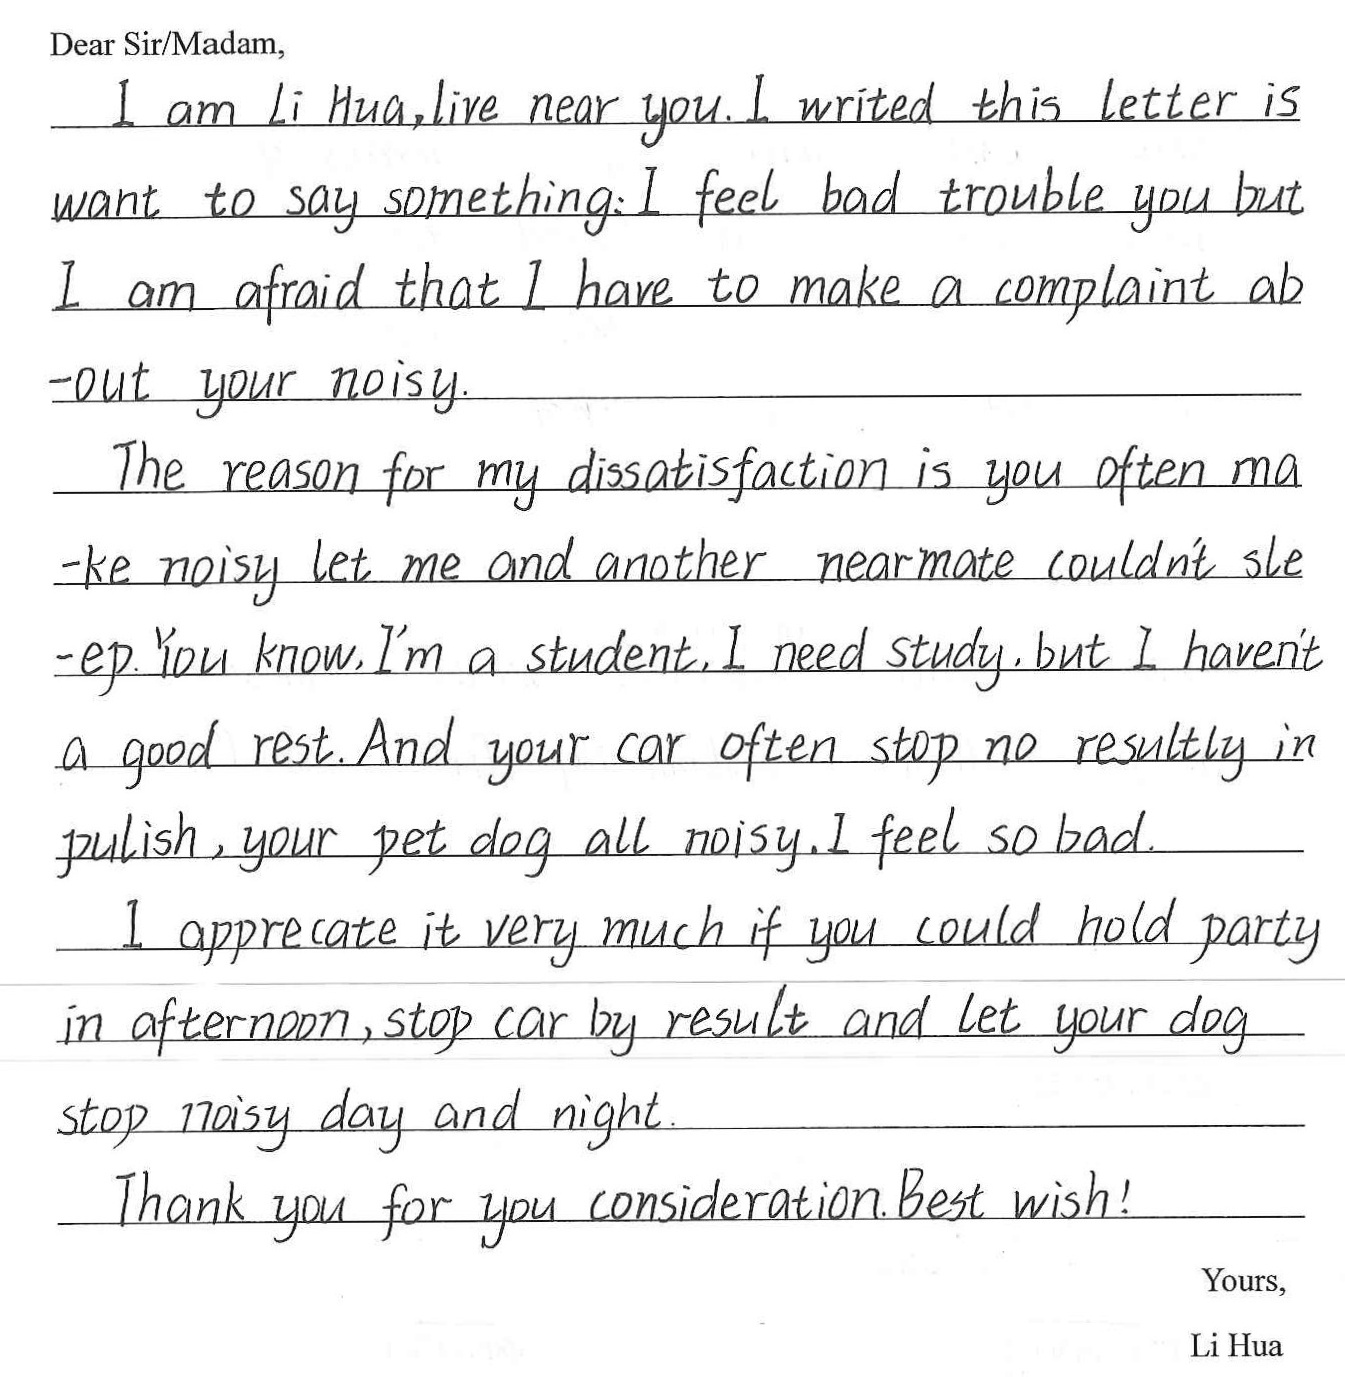 Dear Sir/Madam,
I am Li Hua, live near you. I writed this letter is
want to say something: I feel bad trouble you but
I am afraid that I have to make a complaint ab
-out your noisy.
The reason for my dissatisfaction is you often ma
-ke noisy let me and another nearmate couldn't sle
-ep. You know, I'm a student, I need study, but I haven't
a good rest. And your car often stop no resultly in
pulish, your pet dog all noisy. I feel so bad.
I apprecate it very much if you could hold party
in afternoon, stop car by result and let your dog
stop noisy day and night.
Thank you for you consideration. Best wish!
Yours,
Li Hua